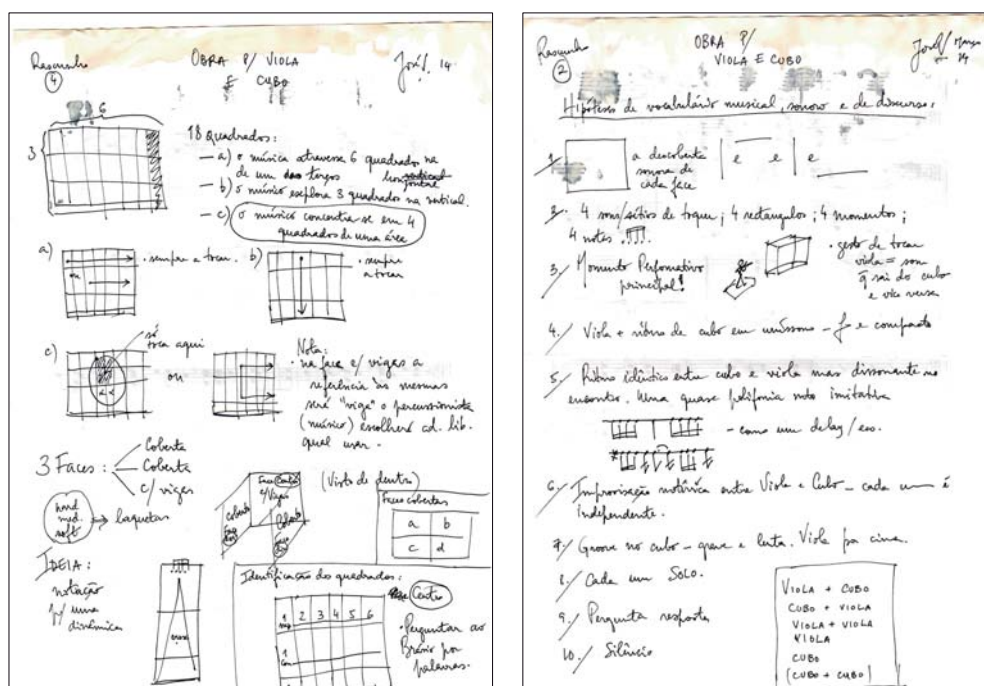 Rascunho
4
OBRA P/ VIOLA
E CUBO
José 14
6
3
18 Quadrados:
— a) o músico atravessa 6 quadrados na
de um dos terços horizontal
— b) o músico explora 3 quadrados na vertical.
— c) o músico concentra-se em 4
quadrados de uma área
a)
• sempre a tocar.
b)
• sempre
a tocar
ou
c)
só
toca aqui
ou
Nota:
• na face c/ vigas a
referência às mesmas
será "viga" o percussionista
(músico) escolherá ad. lib.
qual usar.
3 Faces:
Coberta
Coberta
c/ vigas
hard
med.
soft
baquetas
(Visto de dentro)
Face Centro
c/ Vigas
Coberta
Coberta
Faces cobertas
a b
c d
IDEIA:
notação
p/ uma
dinâmica
Identificação dos quadrados:
1 2 3 4 5 6
Centro
• Perguntar ao
Brásio por
palavras.
Rascunho
2
OBRA P/
VIOLA E CUBO
José Março
14
Hipóteses de vocabulário musical, sonoro e de discurso:
1.
a descoberta
sonora de
cada face
e e e
2. 4 sons/sítios de toque; 4 rectangulos; 4 momentos;
4 notas
3. Momento Perfomativo
principal!
• gesto de tocar
viola = som
q sai do cubo
e vice versa
4. Viola + ritmo de cubo em uníssono – f e compacto
5. Ritmo idêntico entre cubo e viola mas dissonante no
encontro. Uma quase polifonia não imitativa
– como um delay/eco.
6. Improvisação motívica entre Viola e Cubo – cada um é
independente.
7. Groove no cubo – grave e lenta. Viola por cima.
8. Cada um SOLO.
9. Pergunta resposta
10. Silêncio
VIOLA + CUBO
CUBO + VIOLA
VIOLA + VIOLA
VIOLA
CUBO
(CUBO + CUBO)